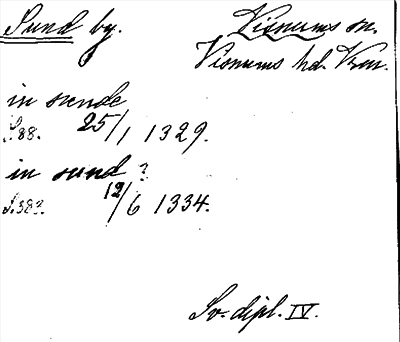 Sund by. Visnums sn.
Visnums hd. Vrm.
in sunde
S. 88. 25/1 1329.
in sund ?
S. 383. 12/6 1334.
Sv. dipl. IV.